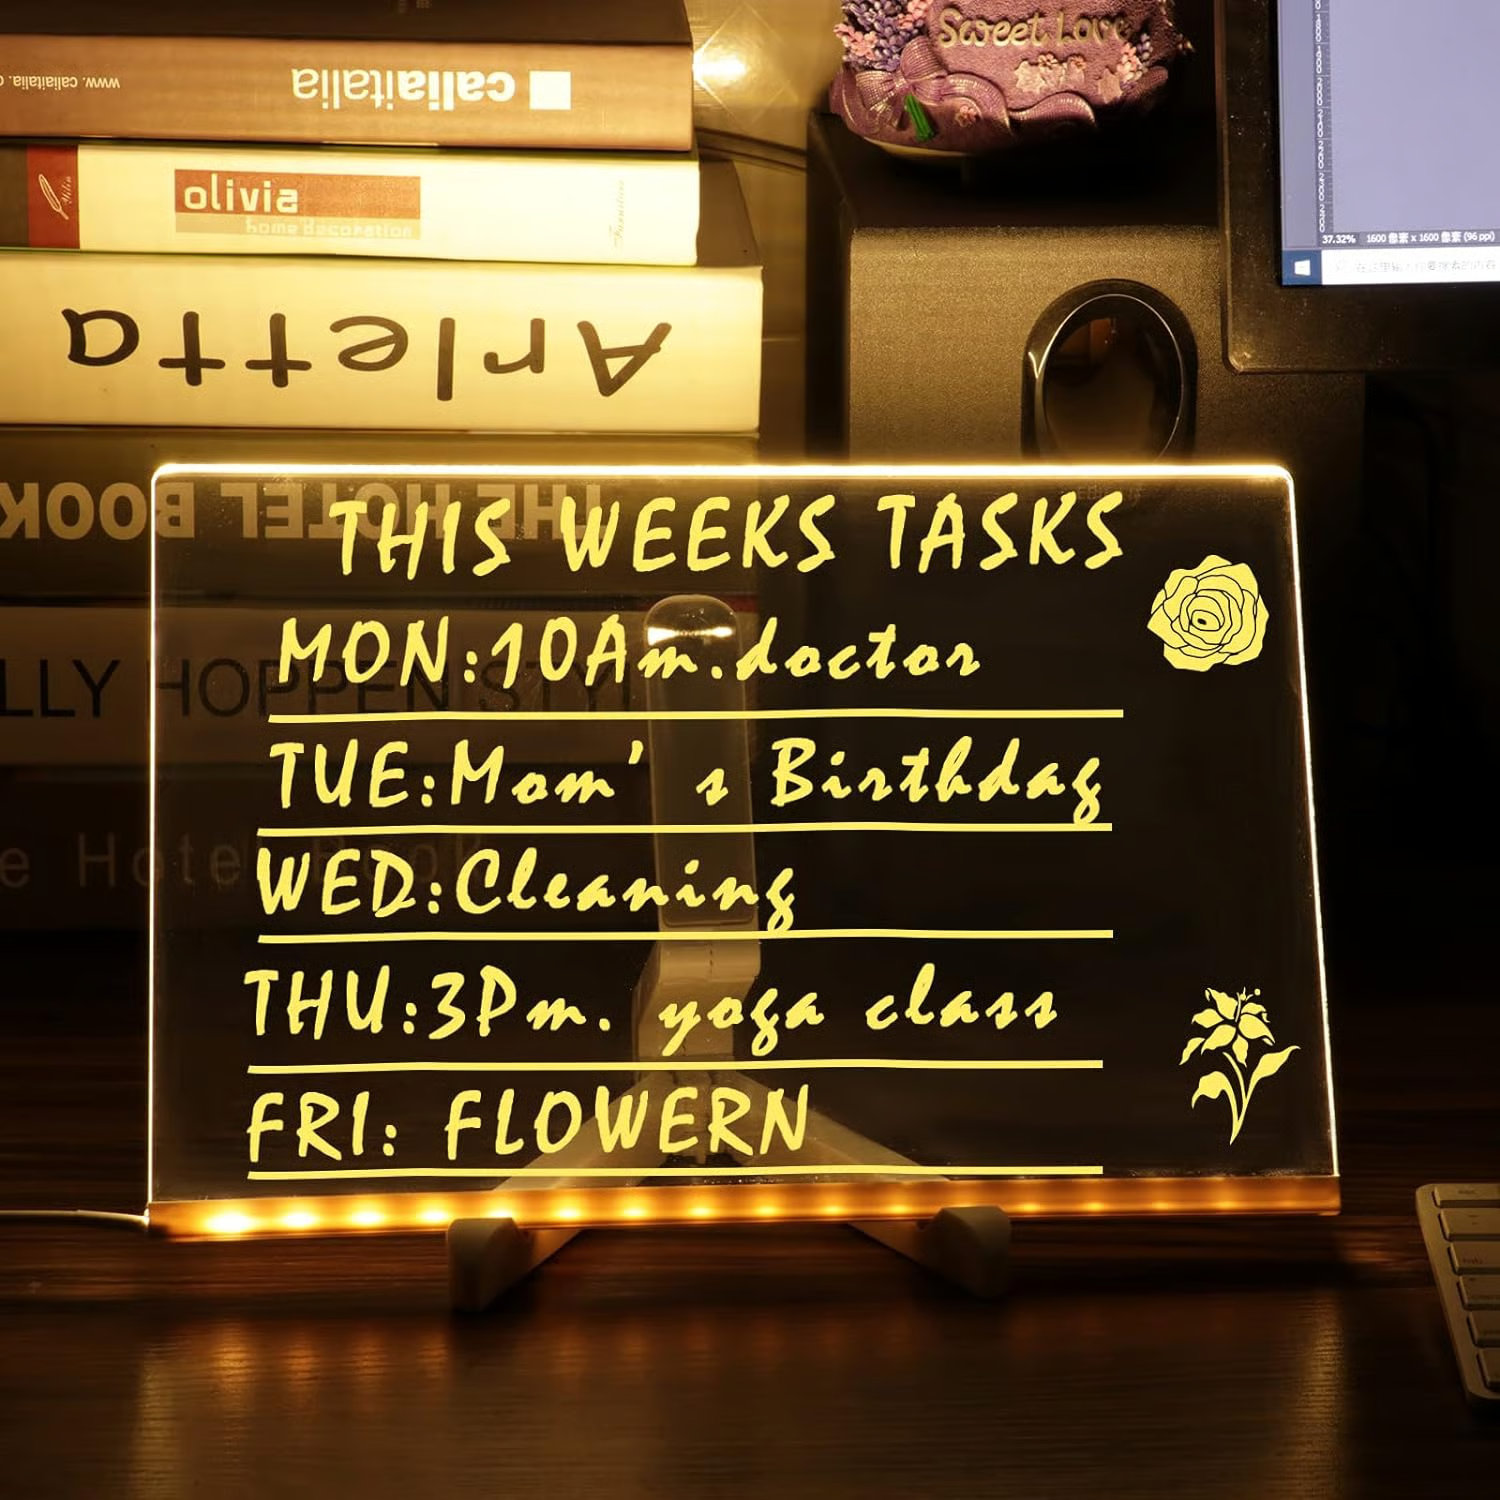 www.caliaitalia.c
caliaitalia
Sweet Love
olivia
home decoration
37.32% 1600 像素 x 1600 像素 (96 ppi)
Arletta
THE HOTEL BOOK
THIS WEEKS TASKS
MON:10Am.doctor
LLY HOPPEN STYL
TUE:Mom's Birthday
e Hotel Book
WED:Cleaning
THU:3Pm. yoga class
FRI: FLOWERN